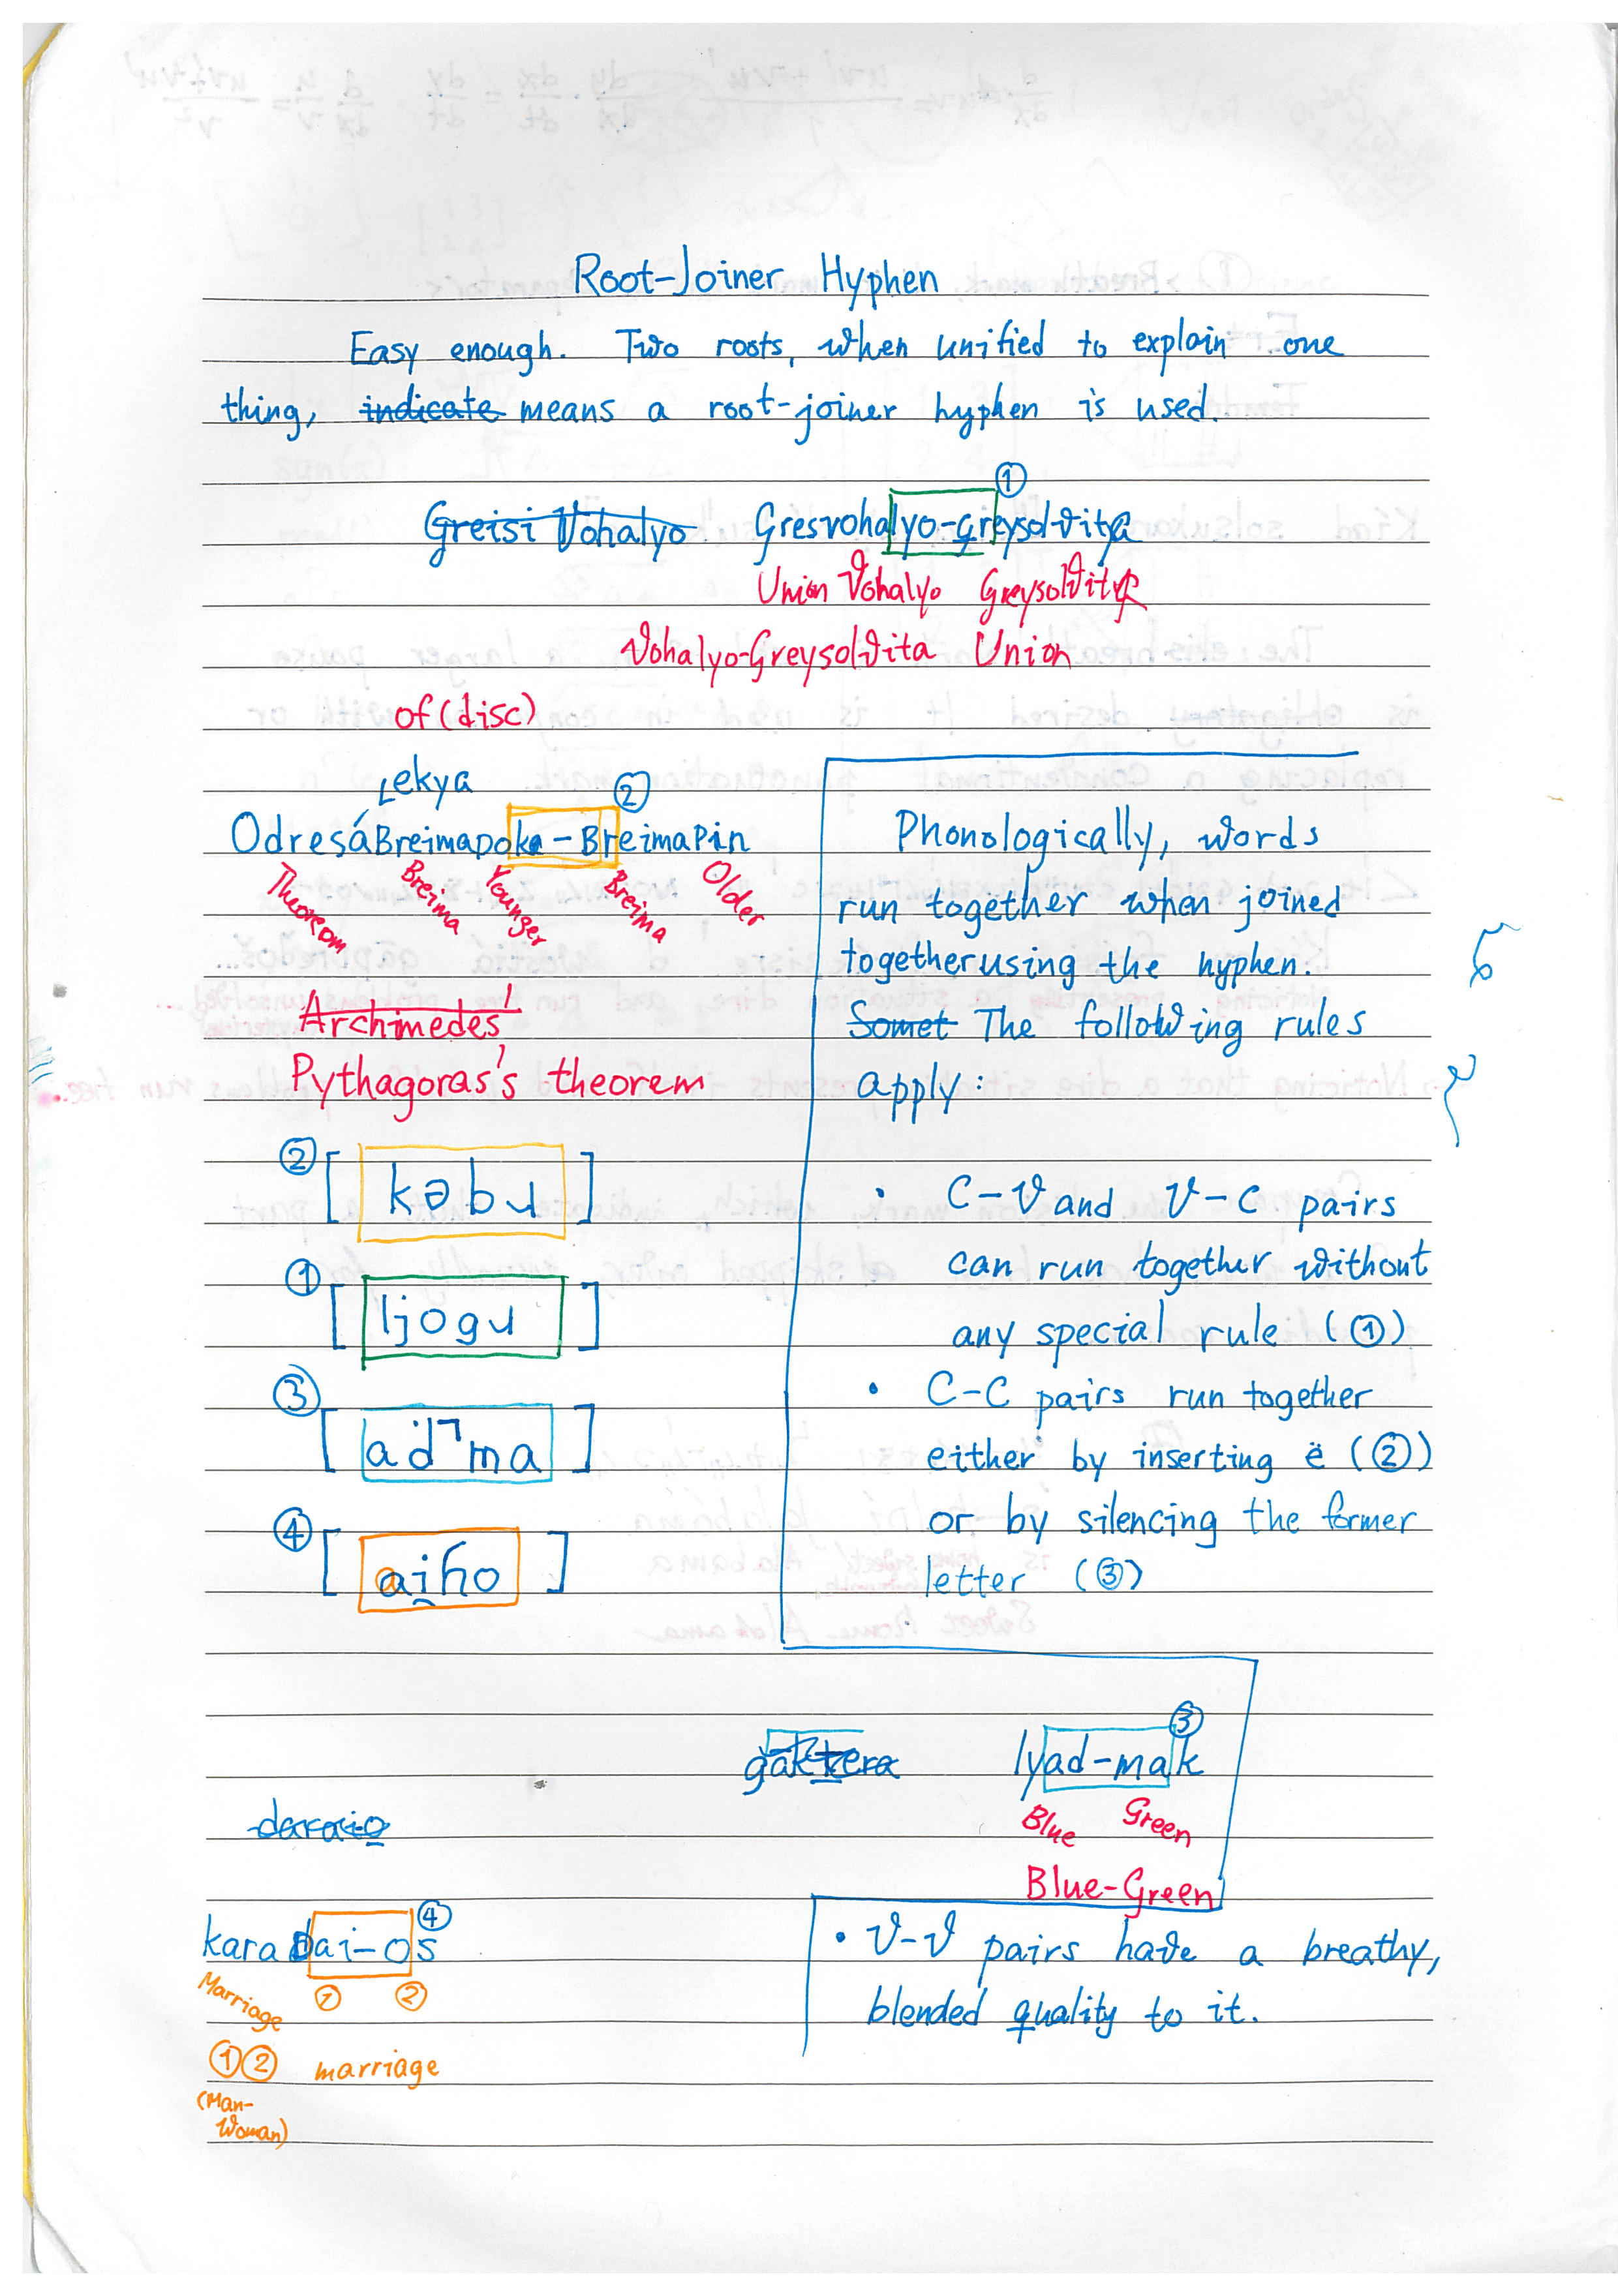 Root-Joiner Hyphen
Easy enough. Two roots, when unified to explain one
thing, indicate means a root-joiner hyphen is used.
①
Greisi Vohalyo Gresvohalyo-greysolvita
Union Vohalyo Greysolvita
Vohalyo-Greysolvita Union
of (disc)
Lekya
②
OdresáBreimapoka-BreimaPin
Theorem Breima Younger Breima Older
Archimedes'
Pythagoras's theorem
② [ kəbɹ ]
① [ ljogɹ ]
③ [ ad̚ma ]
④ [ ai̯ɦo ]
Phonologically, words
run together when joined
together using the hyphen.
Somet The following rules
apply:
• C-V and V-C pairs
can run together without
any special rule (①)
• C-C pairs run together
either by inserting ë (②)
or by silencing the former
letter (③)
③
gaktera lyad-mak
Blue Green
Blue-Green
daraio
④
karadai-os
Marriage ① ②
①② marriage
(Man-
Woman)
• V-V pairs have a breathy,
blended quality to it.